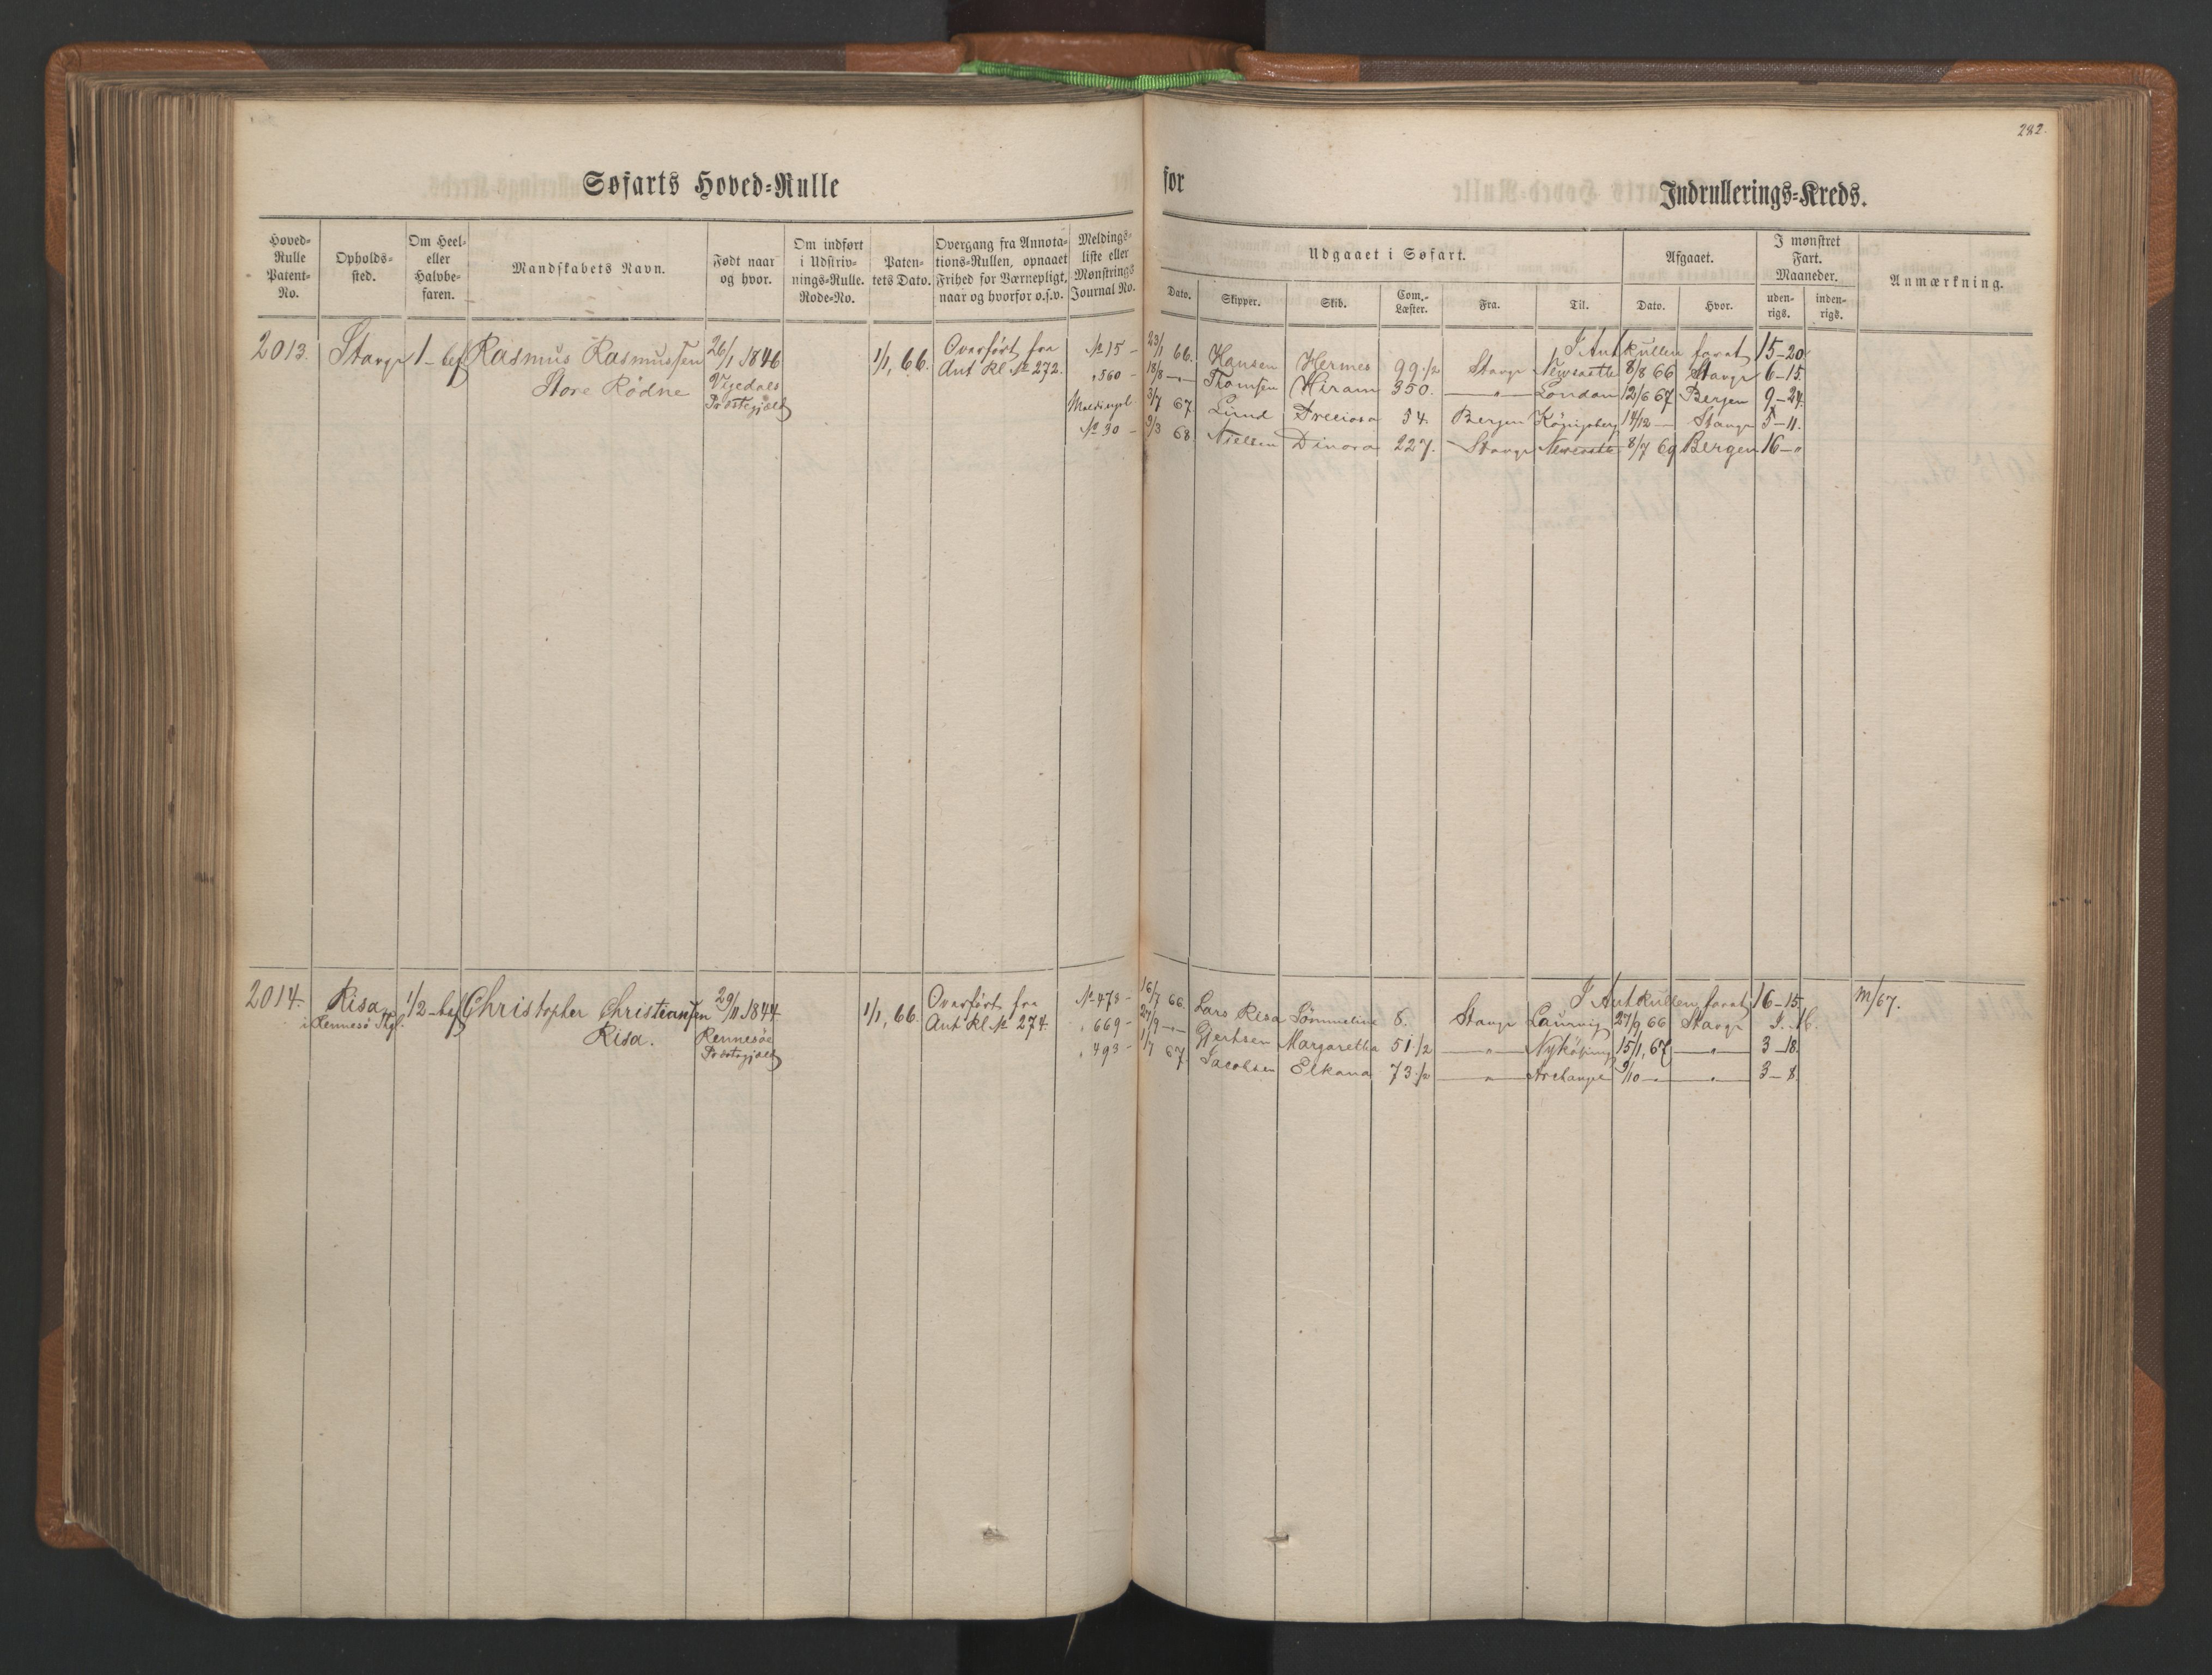 282.
Søfarts Hoved=Rulle for Indrullerings=Kreds.
Hoved=Rulle Patent=No.
Opholds=sted.
Om Heel= eller Halvbe=faren.
Mandskabets Navn.
Født naar og hvor.
Om indført i Udskriv=nings=Rulle. Rode=No.
Paten=tets Dato.
Overgang fra Annota=tions=Rullen, opnaaet Frihed for Værnepligt, naar og hvorfor o.s.v.
Meldings=liste eller Mønstrings Journal No.
Udgaaet i Søfart.
Dato.
Skipper.
Skib.
Com.=Læster.
Fra.
Til.
Afgaaet.
Dato.
Hvor.
I mønstret Fart. Maaneder.
uden=rigs.
inden=rigs.
Anmærkning.
2013. Stavgr 1-bef Rasmus Rasmussen 26/1 1846 1/1, 66. Overført fra
Store Rødne Vigedals Ant Rl No 272.
Præstegjæld
I Ant Rullen farat 15-20
No 15 - 23/1 66. Hansen Hermes 99 1/2 Stavgr Newcastle 8/8 66 Stavgr 6-15.
" 560 - 18/8 -"- Thomsen Hiram 350. -"- London 12/6 67 Bergen 9-24.
Meldingsl 3/7 67. Lund Preciosa 54. Bergen Königsberg 14/12 - Stavgr 5-11.
No 30 - 3/3 68. Nielsen Dinora 227. Stavgr Newcastle 8/7 69 Bergen 16-"
2014. Risa 1/2-bef Christopher Christiansen 29/11 1844 1/1, 66. Overført fra
i Rennesö Risa. Rennesöe Ant Rl No 274.
Præstegjæld
I Ant Rullen farat 16-15. M/67.
No 473 - 16/7 66. Lars Risa Sömmeline 8. Stavgr Laurvig 27/9 66 Stavgr
" 669 - 27/9 -"- Gjertsen Margaretha 51 1/2 -"- Nyköping 15/1, 67 -"- 3-18.
" 493 - 1/7 67. Jacobsen Elkana 73 1/2 -"- Archangel 9/10 -"- -"- 3-8.